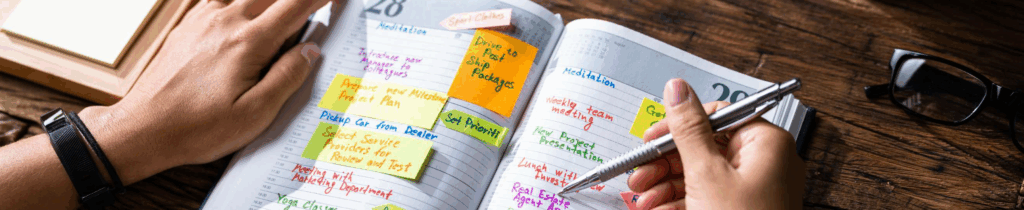 28
Sport Clothes
Meditation
Introduce new
Manager to
Colleagues
Drive to
Post
Ship
Packages
Prepare new Milestone
Project Plan
Set Prioriti
Pickup Car from Dealer
Select Service
Providers for
Review and Test
Meeting with
Marketing Department
Yoga Classes
29
Meditation
Weekly team
meeting
New Project
Presentation
Lunch with
Investor
Real Estate
Agent